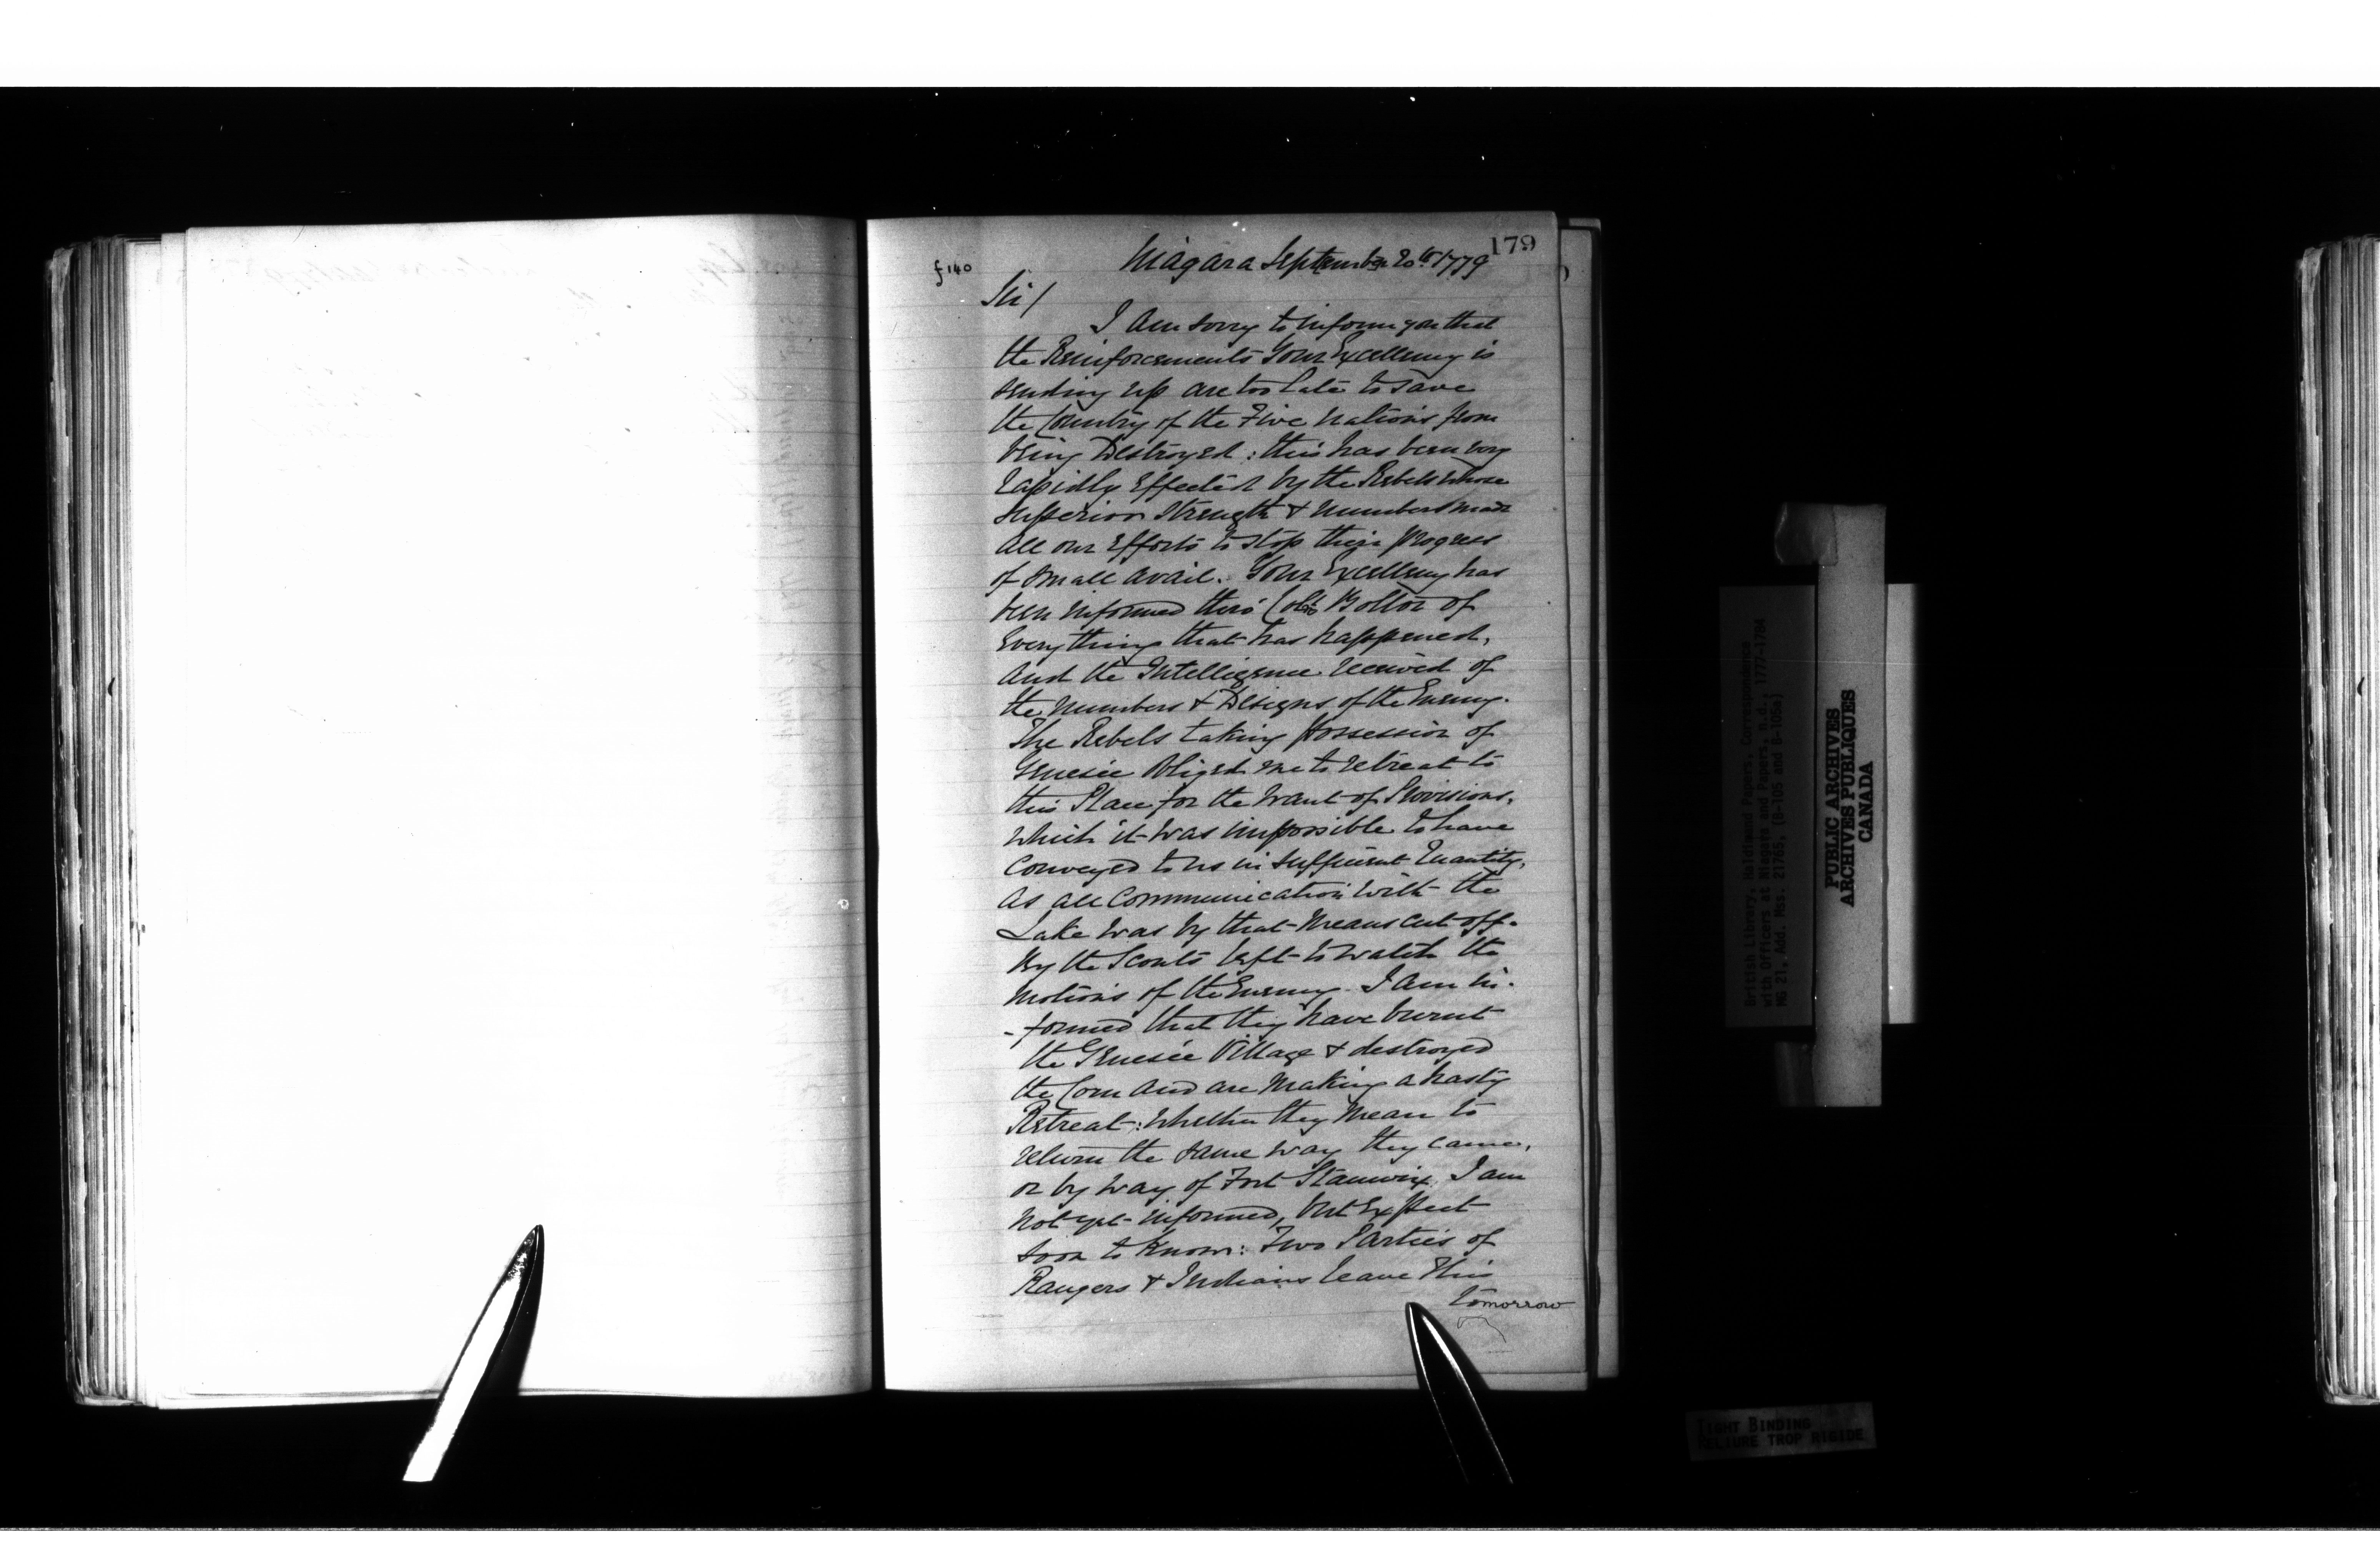 179
Niagara September 20th 1779
f 140
Sir/
I Am sorry to inform you that
the Reinforcements Your Excellency is
sending up are too late to save
the Country of the Five Nations from
being Destroyed: this has been very
rapidly Effected by the Rebels whose
superior Strength & numbers made
all our Efforts to stop their progress
of small avail. Your Excellency has
been informed thro' Colo Bolton of
Everything that has happened,
and the Intelligence received of
the numbers & Designs of the Enemy.
The Rebels taking possession of
Genesée obliged me to retreat to
this Place for the want of Provisions,
which it was impossible to have
conveyed to us in sufficient Quantity,
as all communication with the
Lake was by that means cut off.
By the Scouts left to watch the
motions of the Enemy I am in-
-formed that they have burnt
the Genesée Village & destroyed
the Corn and are making a hasty
Retreat: whether they mean to
return the same way they came,
or by way of Fort Stanwix I am
not yet informed, but Expect
soon to know: Two Parties of
Rangers & Indians leave this
tomorrow
British Library, Haldimand Papers, Correspondence
with Officers at Niagara and Papers, n.d., 1777-1784
MG 21, Add. Mss. 21765, (B-105 and B-105a)
PUBLIC ARCHIVES
ARCHIVES PUBLIQUES
CANADA
TIGHT BINDING
RELIURE TROP RIGIDE